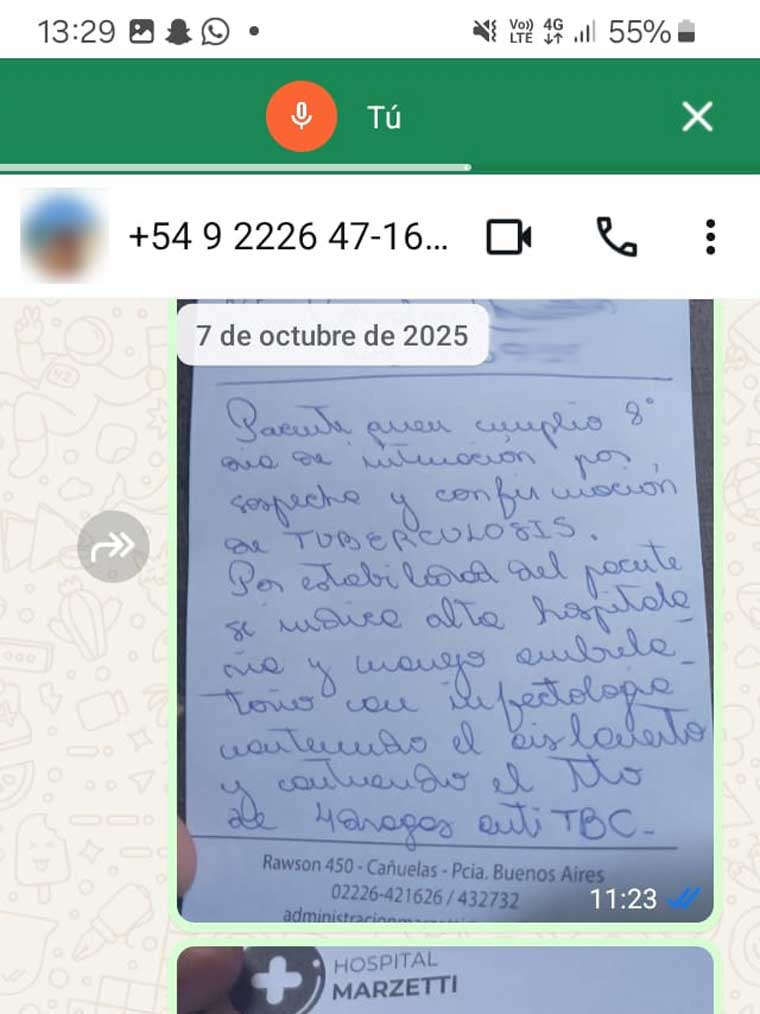 13:29
Vo)) LTE 4G 55%
Tú
+54 9 2226 47-16...
7 de octubre de 2025
Paciente quien cumplio 8°
dia de internación por
sospecha y confirmación
de TUBERCULOSIS.
Por estabilidad del paciente
se indica alta hospitala
ria y manejo ambula_
torio con infectologia
manteniendo el aislamiento
y continuando el Tto
de 4 drogas anti TBC-
Rawson 450 - Cañuelas - Pcia. Buenos Aires
02226-421626 / 432732
11:23
HOSPITAL
MARZETTI